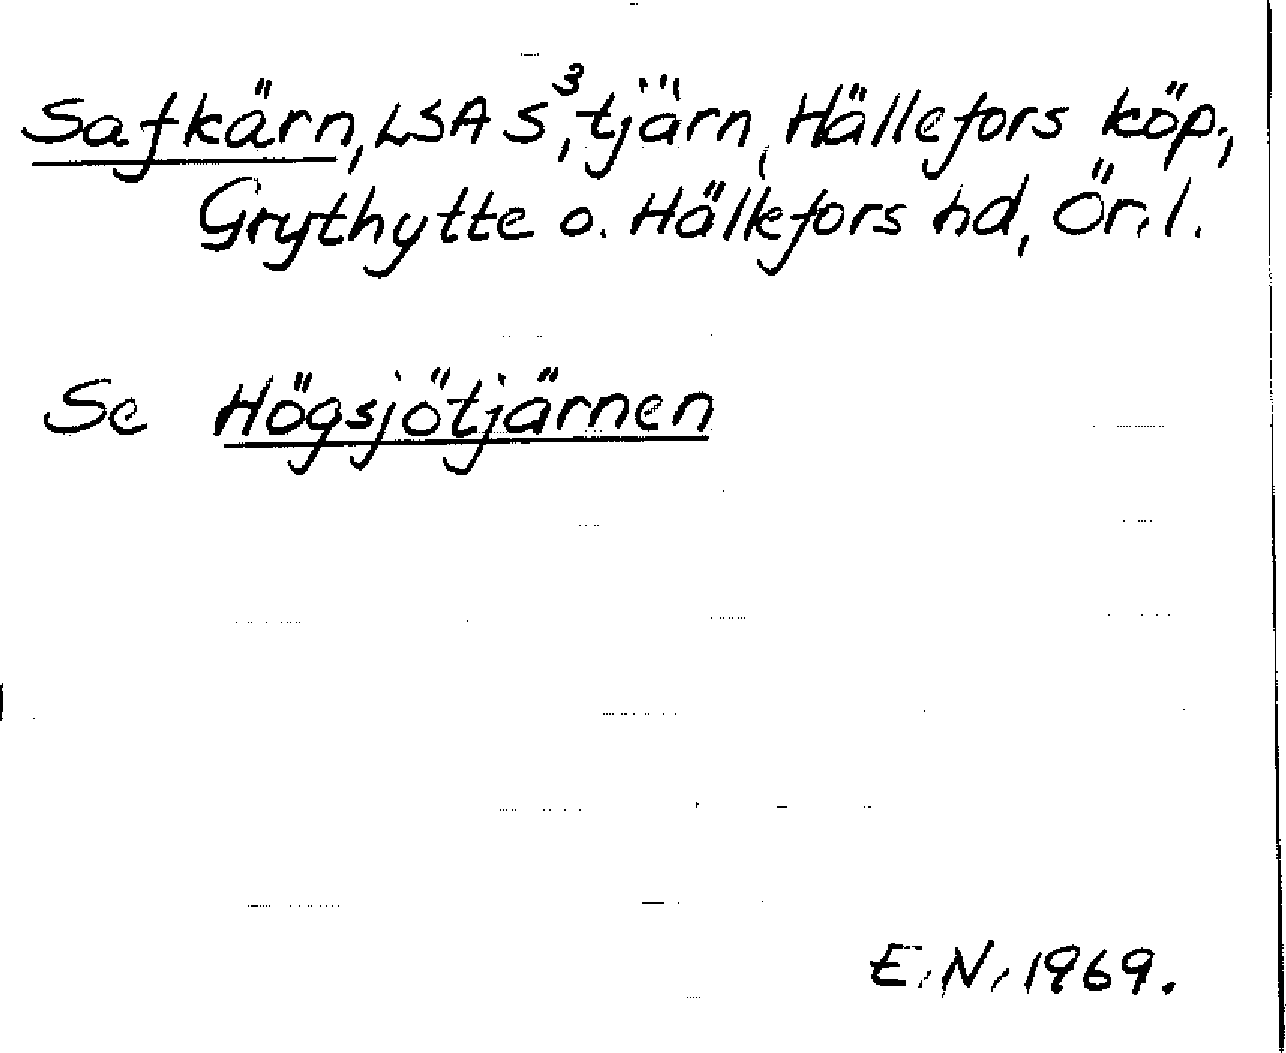 Safkärn, LSA S³, tjärn, Hällefors köp.,
Grythytte o. Hällefors hd, Ör. l.
Se Högsjötjärnen
E. N. 1969.